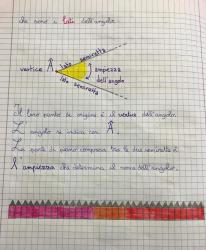 che sono i lati dell'angolo.
lato semiretta
vertice Â
ampiezza
dell'angolo
lato semiretta
Il loro punto di origine è il vertice dell'angolo.
L' angolo si indica con Â.
La parte di piano compresa tra le due semirette è
l'ampiezza che determina il nome dell'angolo.